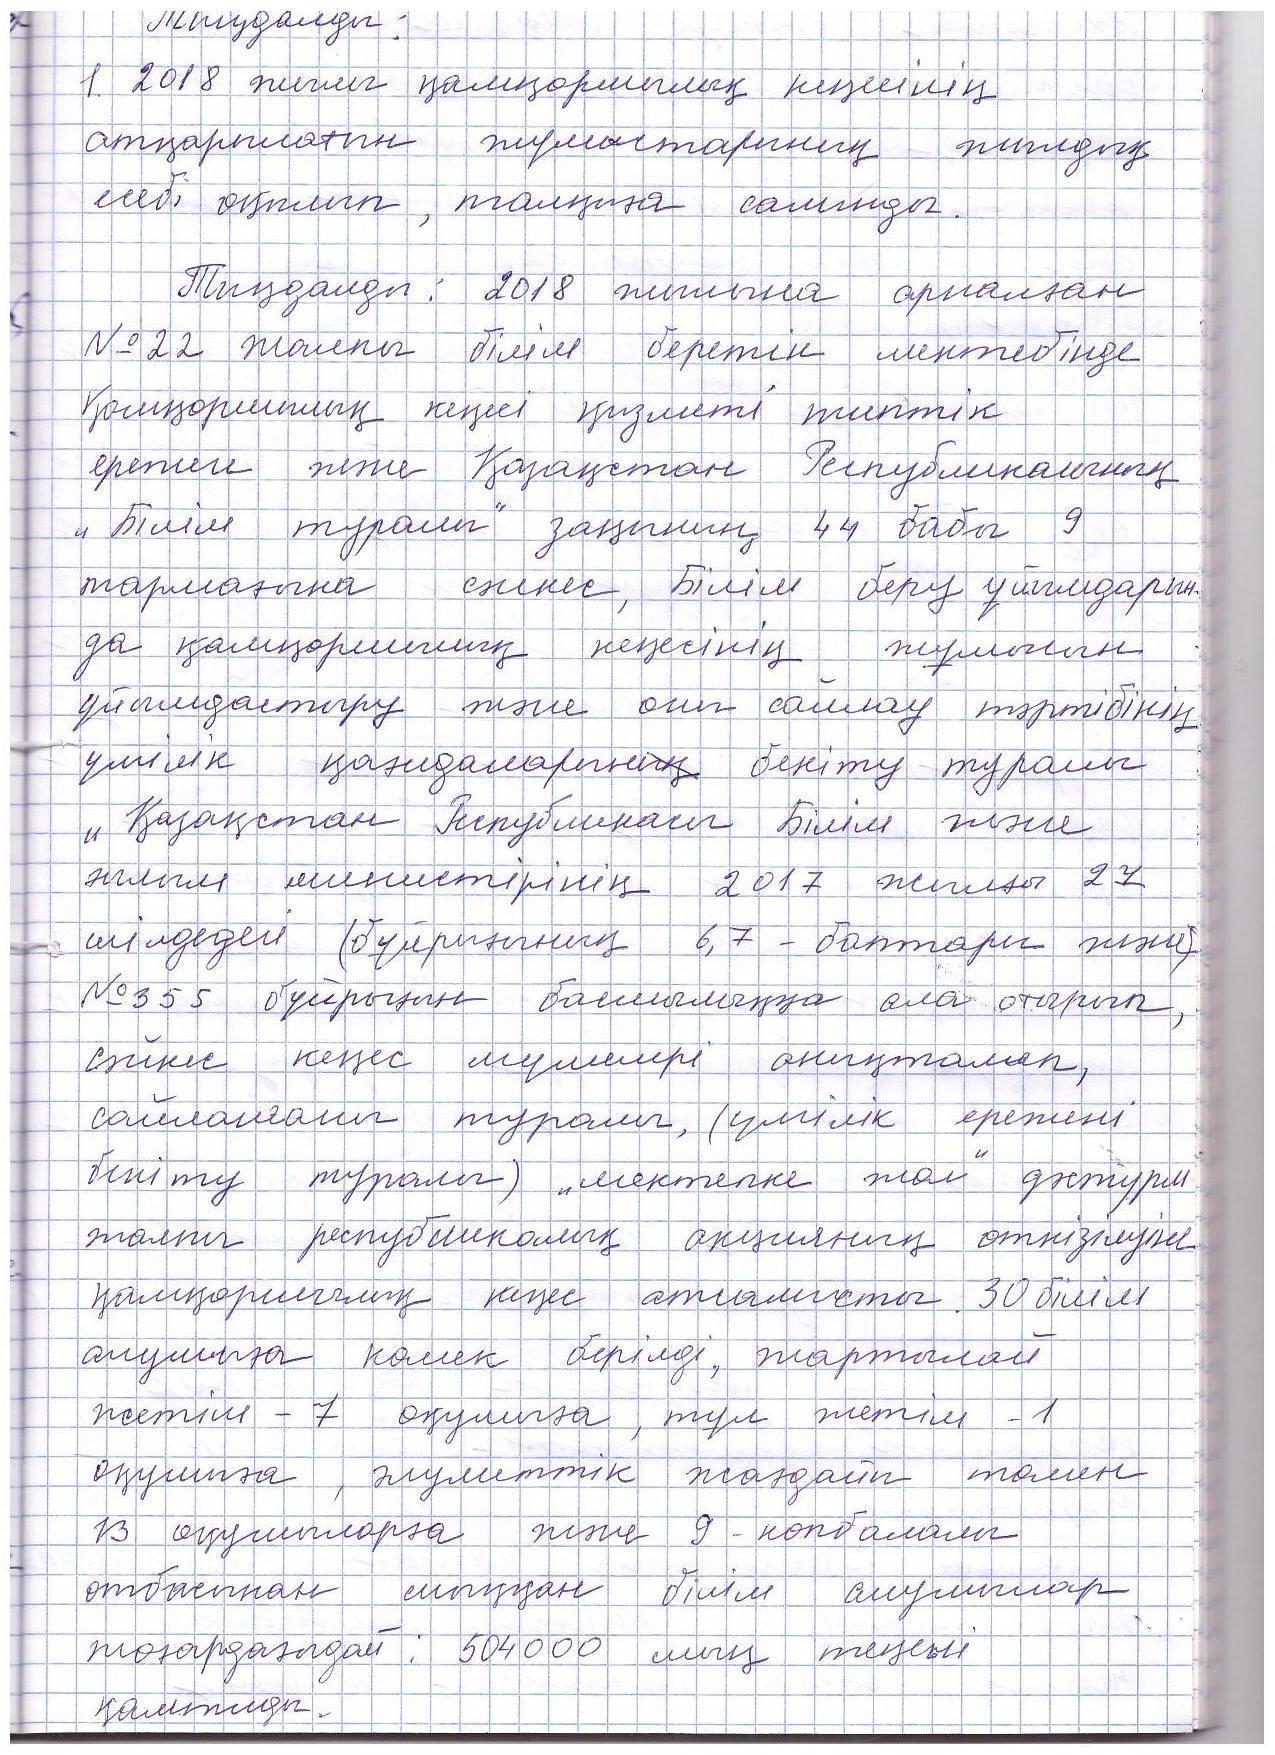 Тыңдалды:
1. 2018 жылы қамқоршылық кеңесінің
атқарылатын жұмыстарының жылдық
есебі оқылып, талқыға салынды.
Тыңдалды: 2018 жылына арналған
№22 жалпы білім беретін мектебінде
Қамқоршылық кеңесі қызметі типтік
ереже және Қазақстан Республикасының
„Білім туралы" заңының 44 бабы 9
тармағына сәйкес, Білім беру ұйымдарын-
да қамқоршылық кеңесінің жұмысын
ұйымдастыру және оны сайлау тәртібінің
үлгілік қағидаларының бекіту туралы
„Қазақстан Республикасы Білім және
ғылым министірінің 2017 жылғы 27
шілдедегі (бұйрығының 6,7 - баптары және)
№355 бұйрығын басшылыққа ала отырып,
сәйкес кеңес мүшелері анықталып,
сайланғаны туралы, (үлгілік ережені
бекіту туралы) „мектепке жол" дәстүрлі
жалпы республикалық акцияның өткізілуіне
қамқоршылық кеңес атсалысты. 30 білім
алушыға көмек берілді, жартылай
жетім - 7 оқушыға, тұл жетім - 1
оқушыға, әлуметтік жағдайы төмен
13 оқушыларға және 9 - көпбалалы
отбасынан шыққан білім алушылар
жоғардағыдай: 504000 мың теңгені
қамтылды.